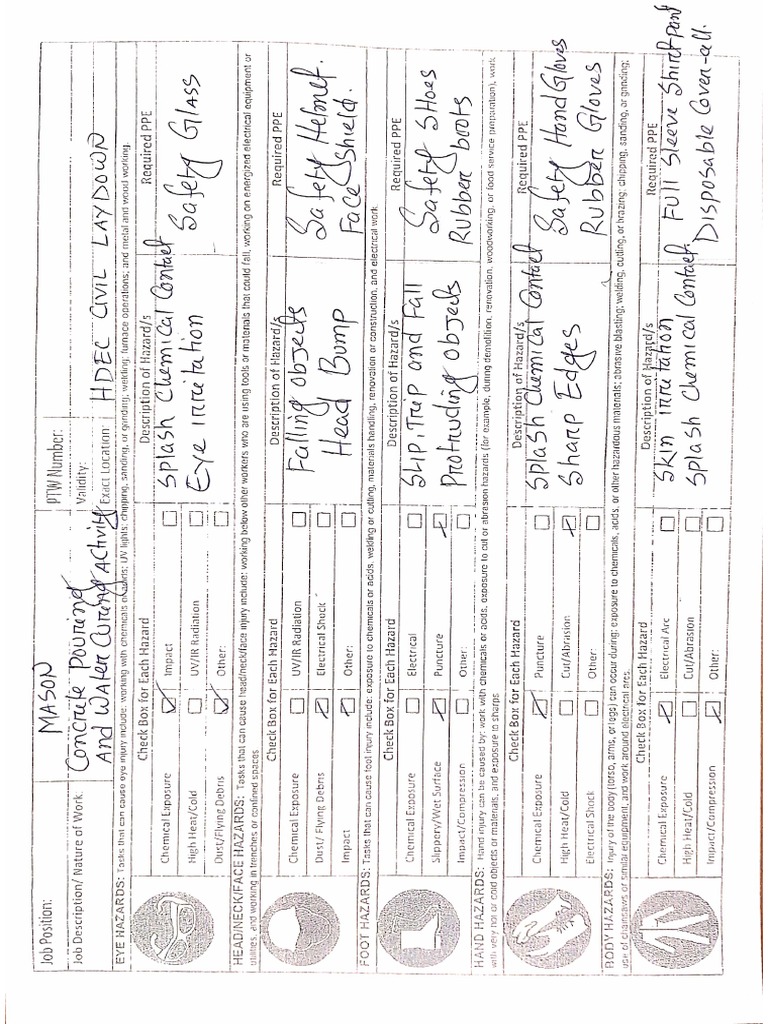 Job Position: MASON PTW Number:
Job Description/ Nature of Work: Concrete Pouring And Water Curing Activity Validity:
Exact Location: HDEC CIVIL LAYDOWN
EYE HAZARDS: Tasks that can cause eye injury include: working with chemicals or acids; UV lights; chipping, sanding, or grinding; welding; furnace operations; and metal and wood working.
Check Box for Each Hazard Description of Hazard/s Required PPE
Chemical Exposure Impact Splash Chemical Contact
High Heat/Cold UV/IR Radiation Eye irritation Safety GLASS
Dust/Flying Debris Other:
HEAD/NECK/FACE HAZARDS: Tasks that can cause head/neck/face injury include: working below other workers who are using tools or materials that could fall, working on energized electrical equipment or
utilities, and working in trenches or confined spaces
Check Box for Each Hazard Description of Hazard/s Required PPE
Chemical Exposure UV/IR Radiation Falling objects Safety Helmet.
Dust/ Flying Debris Electrical Shock Head Bump Face Shield.
Impact Other:
FOOT HAZARDS: Tasks that can cause foot injury include: exposure to chemicals or acids, welding or cutting, materials handling, renovation or construction, and electrical work
Check Box for Each Hazard Description of Hazard/s Required PPE
Chemical Exposure Electrical SLIP, Trip and Fall Safety SHoes
Slippery/Wet Surface Puncture Protruding objects Rubber boots
Impact/Compression Other:
HAND HAZARDS: Hand injury can be caused by: work with chemicals or acids, exposure to cut or abrasion hazards (for example, during demolition, renovation, woodworking, or food service preparation), work
with very hot or cold objects or materials, and exposure to sharps
Check Box for Each Hazard Description of Hazard/s Required PPE
Chemical Exposure Puncture Splash Chemical Contact Safety Hand Gloves
High Heat/Cold Cut/Abrasion Sharp Edges Rubber Gloves
Electrical Shock Other:
BODY HAZARDS: Injury of the body (torso, arms, or legs) can occur during: exposure to chemicals, acids, or other hazardous materials; abrasive blasting; welding, cutting, or brazing; chipping, sanding, or grinding;
use of chainsaws or similar equipment, and work around electrical arcs
Check Box for Each Hazard Description of Hazard/s Required PPE
Chemical Exposure Electrical Arc Skin irritation Full Sleeve Shirt Pant
High Heat/Cold Cut/Abrasion Splash Chemical Contact. Disposable Cover-all.
Impact/Compression Other: